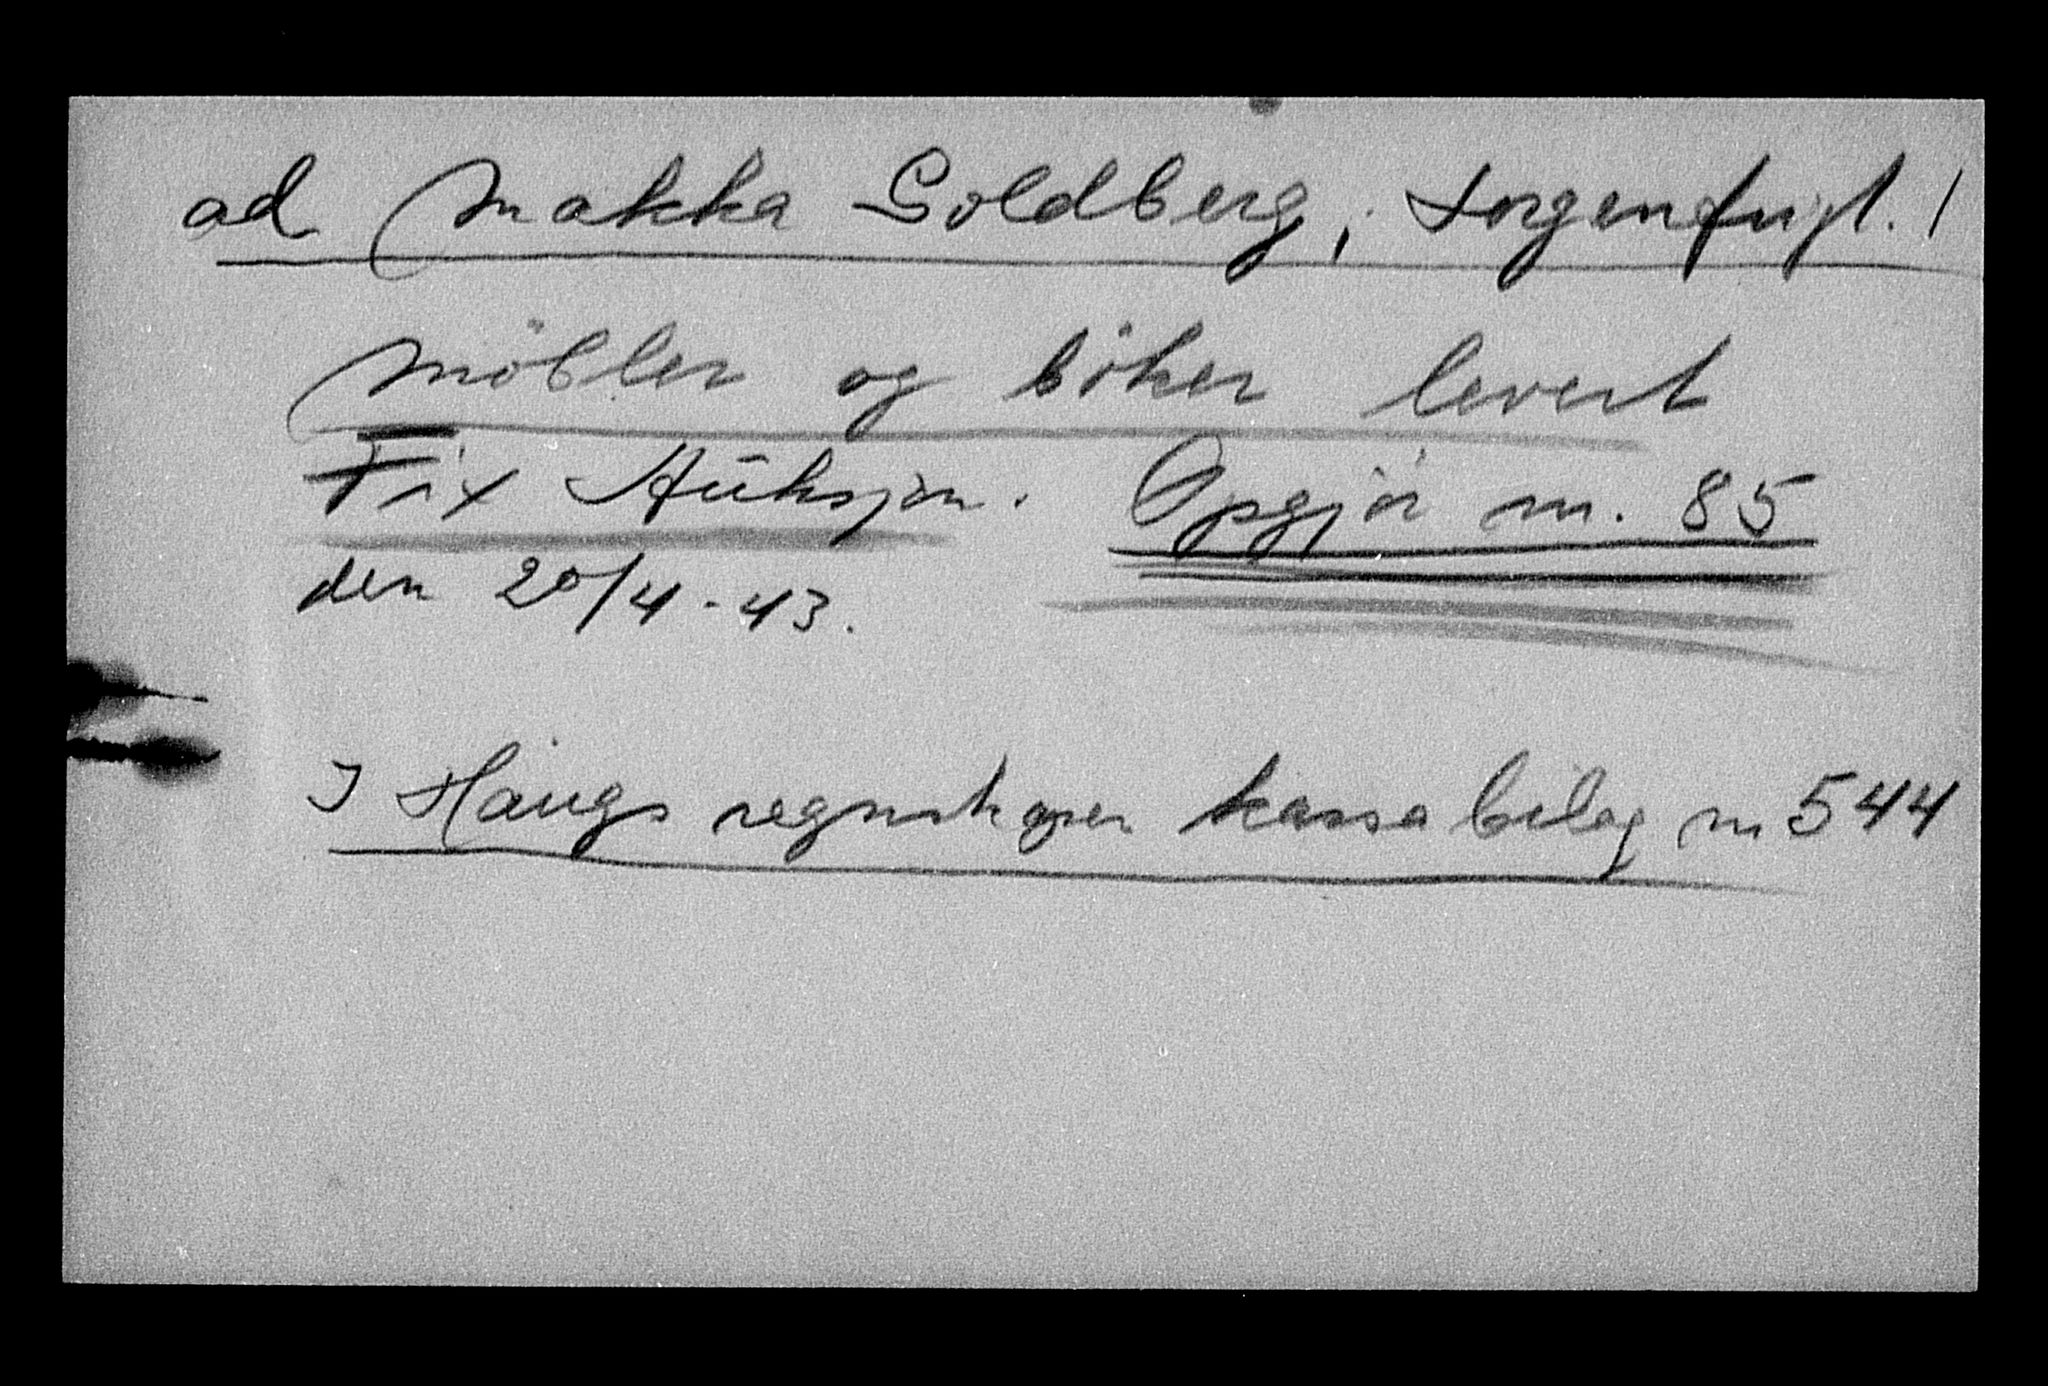 ad Makka Goldberg, Sorgenfrigt. 1
Möbler og böker levert
Fix Auksjon. Opgjör nr. 85
den 20/4-43.
I Haugs regnskaper kassabilag nr 544